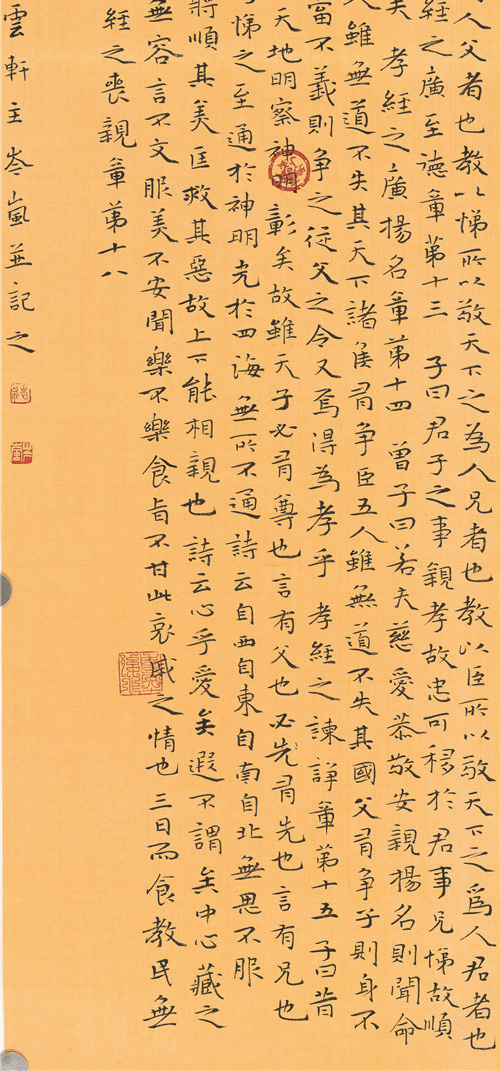 人父者也教以悌所以敬天下之為人兄者也教以臣所以敬天下之為人君者也
經之廣至德章第十三 子曰君子之事親孝故忠可移於君事兄悌故順
夫 孝經之廣揚名章第十四 曾子曰若夫慈愛恭敬安親揚名則聞命
雖無道不失其天下諸侯有争臣五人雖無道不失其國父有争子則身不
當不義則争之從父之令又焉得為孝乎 孝經之諫諍章第十五 子曰昔
天地明察神明彰矣故雖天子必有尊也言有父也必先有先也言有兄也
悌之至通於神明光於四海無所不通詩云自西自東自南自北無思不服
將順其美匡救其惡故上下能相親也詩云心乎愛矣遐不謂矣中心藏之
無容言不文服美不安聞樂不樂食旨不甘此哀戚之情也三日而食教民無
經之喪親章第十八
雲軒主岑嵐並記之